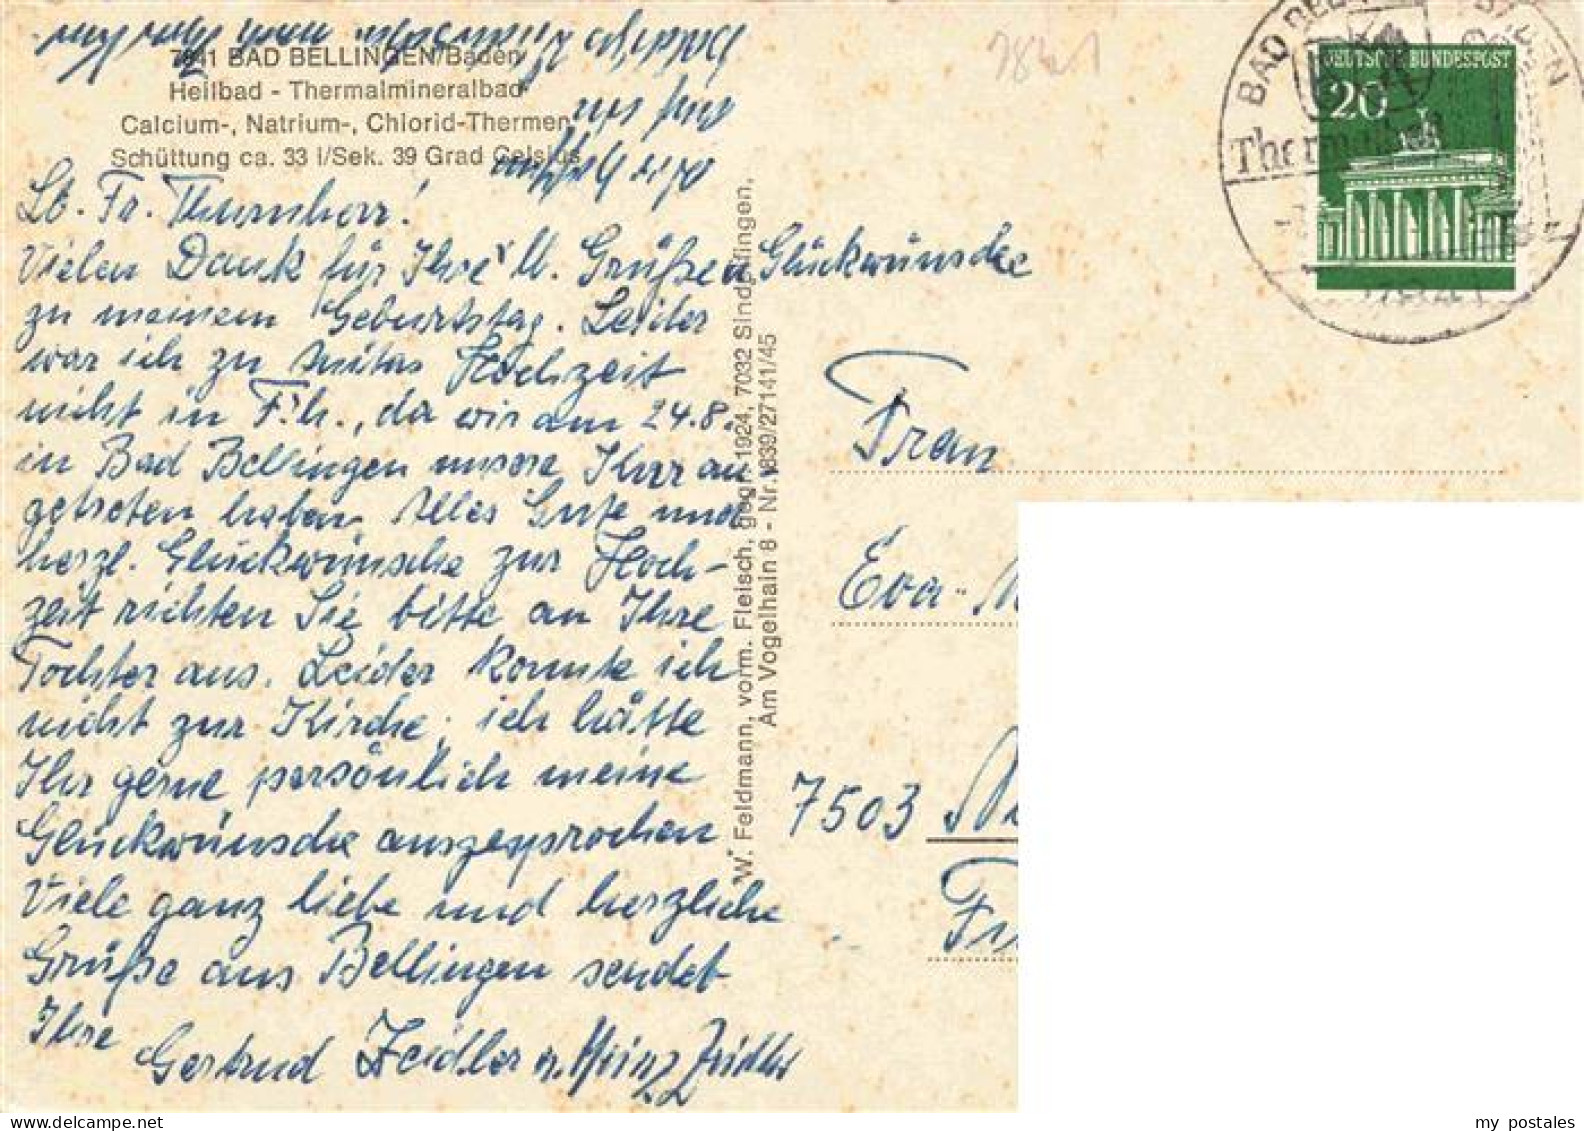 7841 BAD BELLINGEN/Baden
Heilbad - Thermalmineralbad
Calcium-, Natrium-, Chlorid-Thermen
Schüttung ca. 33 l/Sek. 39 Grad Celsius
Lb. Fr. Thurnherr!
Vielen Dank für Ihre lb. Grüße u Glückwünsche
zu meinem Geburtstag. Leider
war ich zu Hochzeit
nicht in F'h., da wir am 24.8.
in Bad Bellingen unsere Kur an
getreten haben. Alles Gute und
herzl. Glückwünsche zur Hoch-
zeit richten Sie bitte an Ihre
Tochter aus. Leider konnte ich
nicht zur Kirche, ich hätte
Ihr gerne persönlich meine
Glückwünsche ausgesprochen
Viele ganz liebe und herzliche
Grüße aus Bellingen sendet
Ihre
Gertrud Zeidler u. Heinz Zeidler
W. Feldmann, vorm. Fleisch, gegr. 1924, 7032 Sindelfingen,
Am Vogelhain 8 - Nr. 1839/27141/45
7841
DEUTSCHE BUNDESPOST
20
BAD BELLINGEN
BADEN
Thermalbad
7841
Frau
Eva-
7503
my_postales